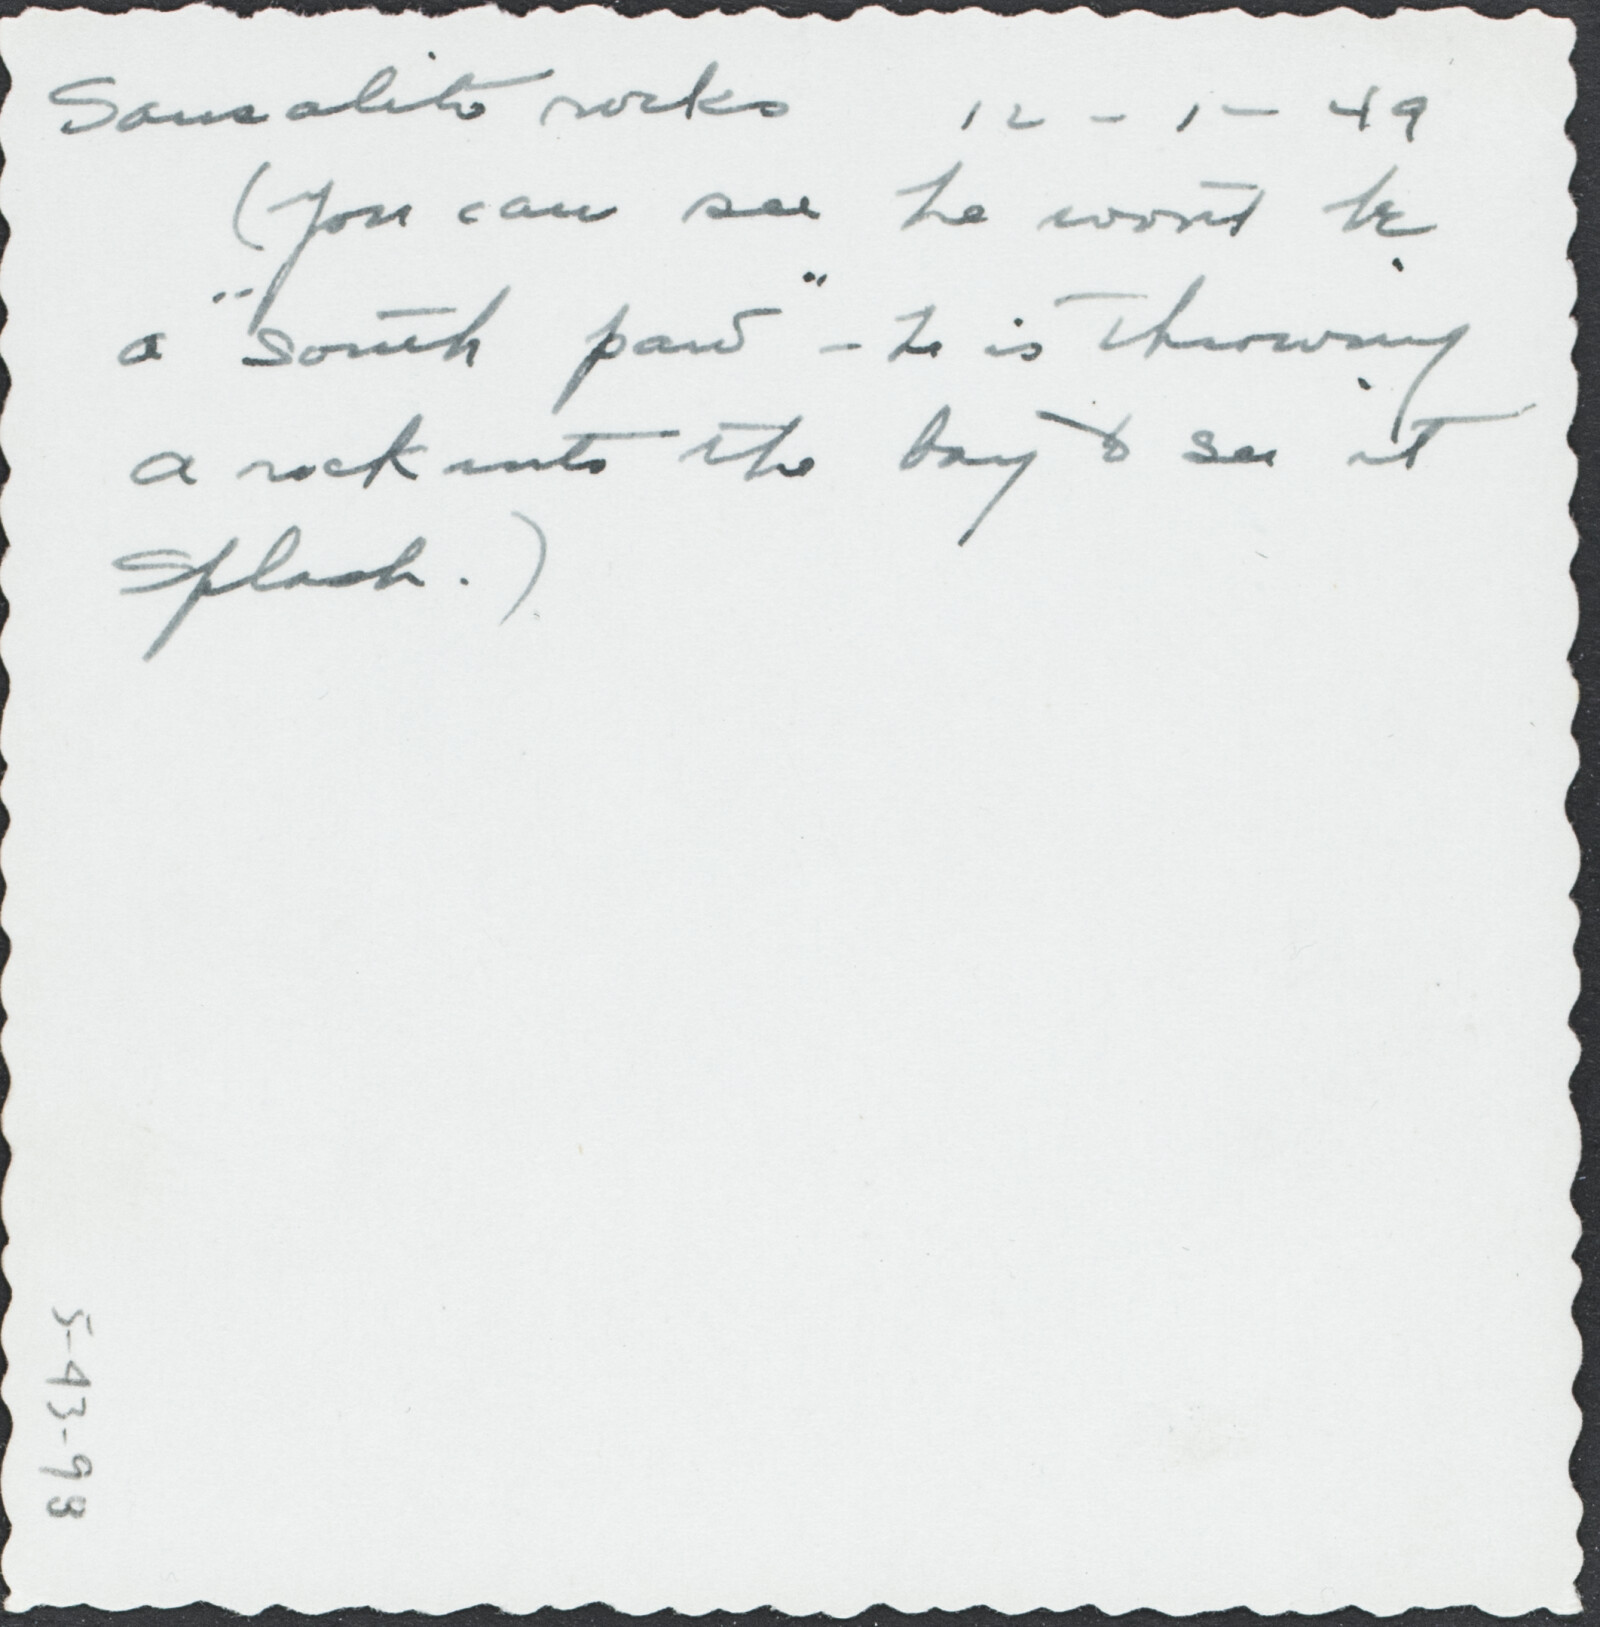 Sausalito rocks 12-1-49
(You can see he won't be
a "south paw" - he is throwing
a rock into the bay to see it
splash.)
5-43-98